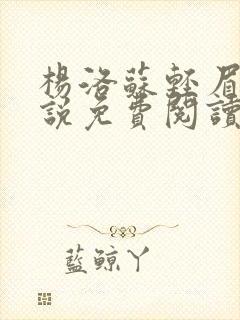 楊洛蘇輕眉
說免費閱讀
藍鯨丫